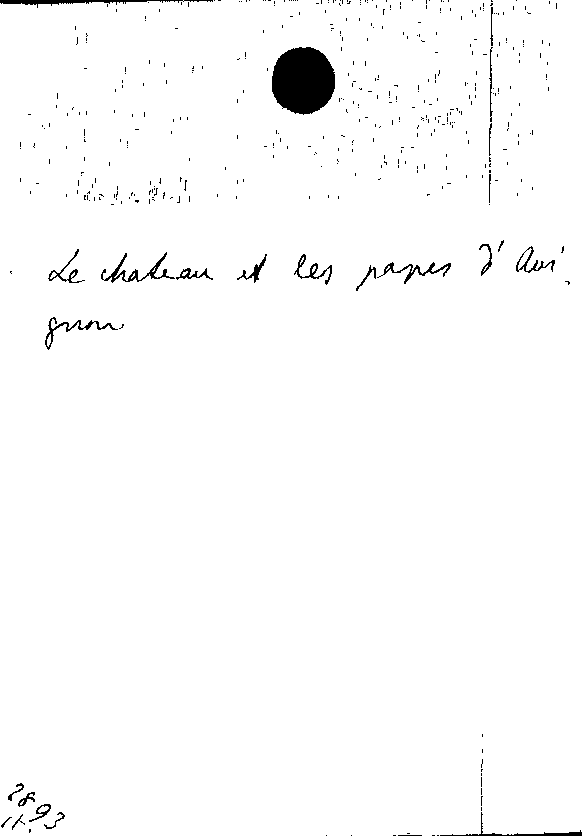 Le chateau et les papes d'Avi.
gnon
28
11.93